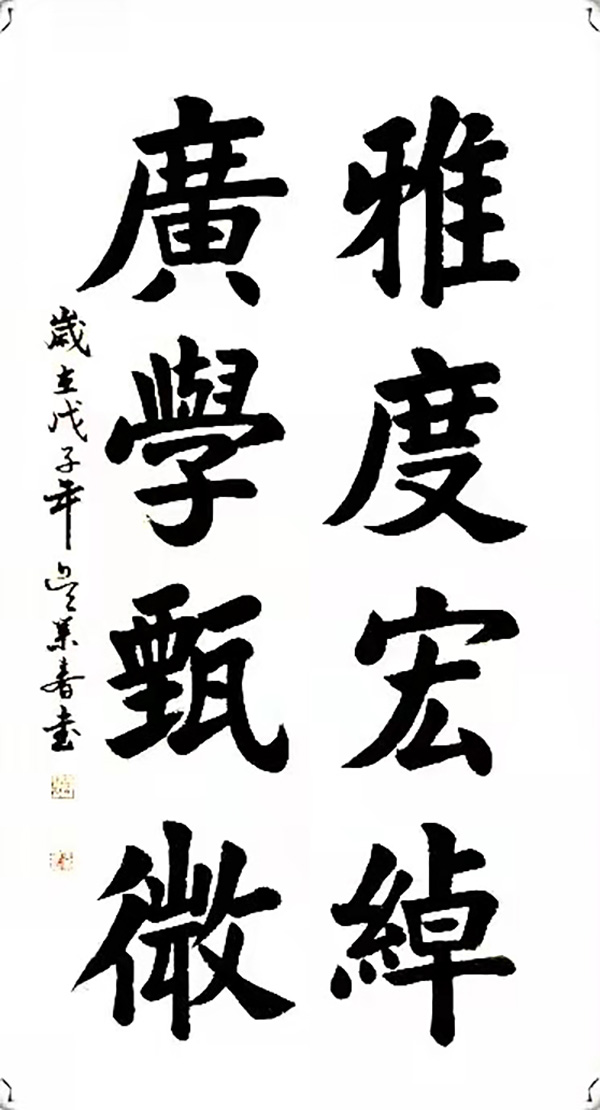 雅度宏綽
廣學甄微
歲在戊子年業春書